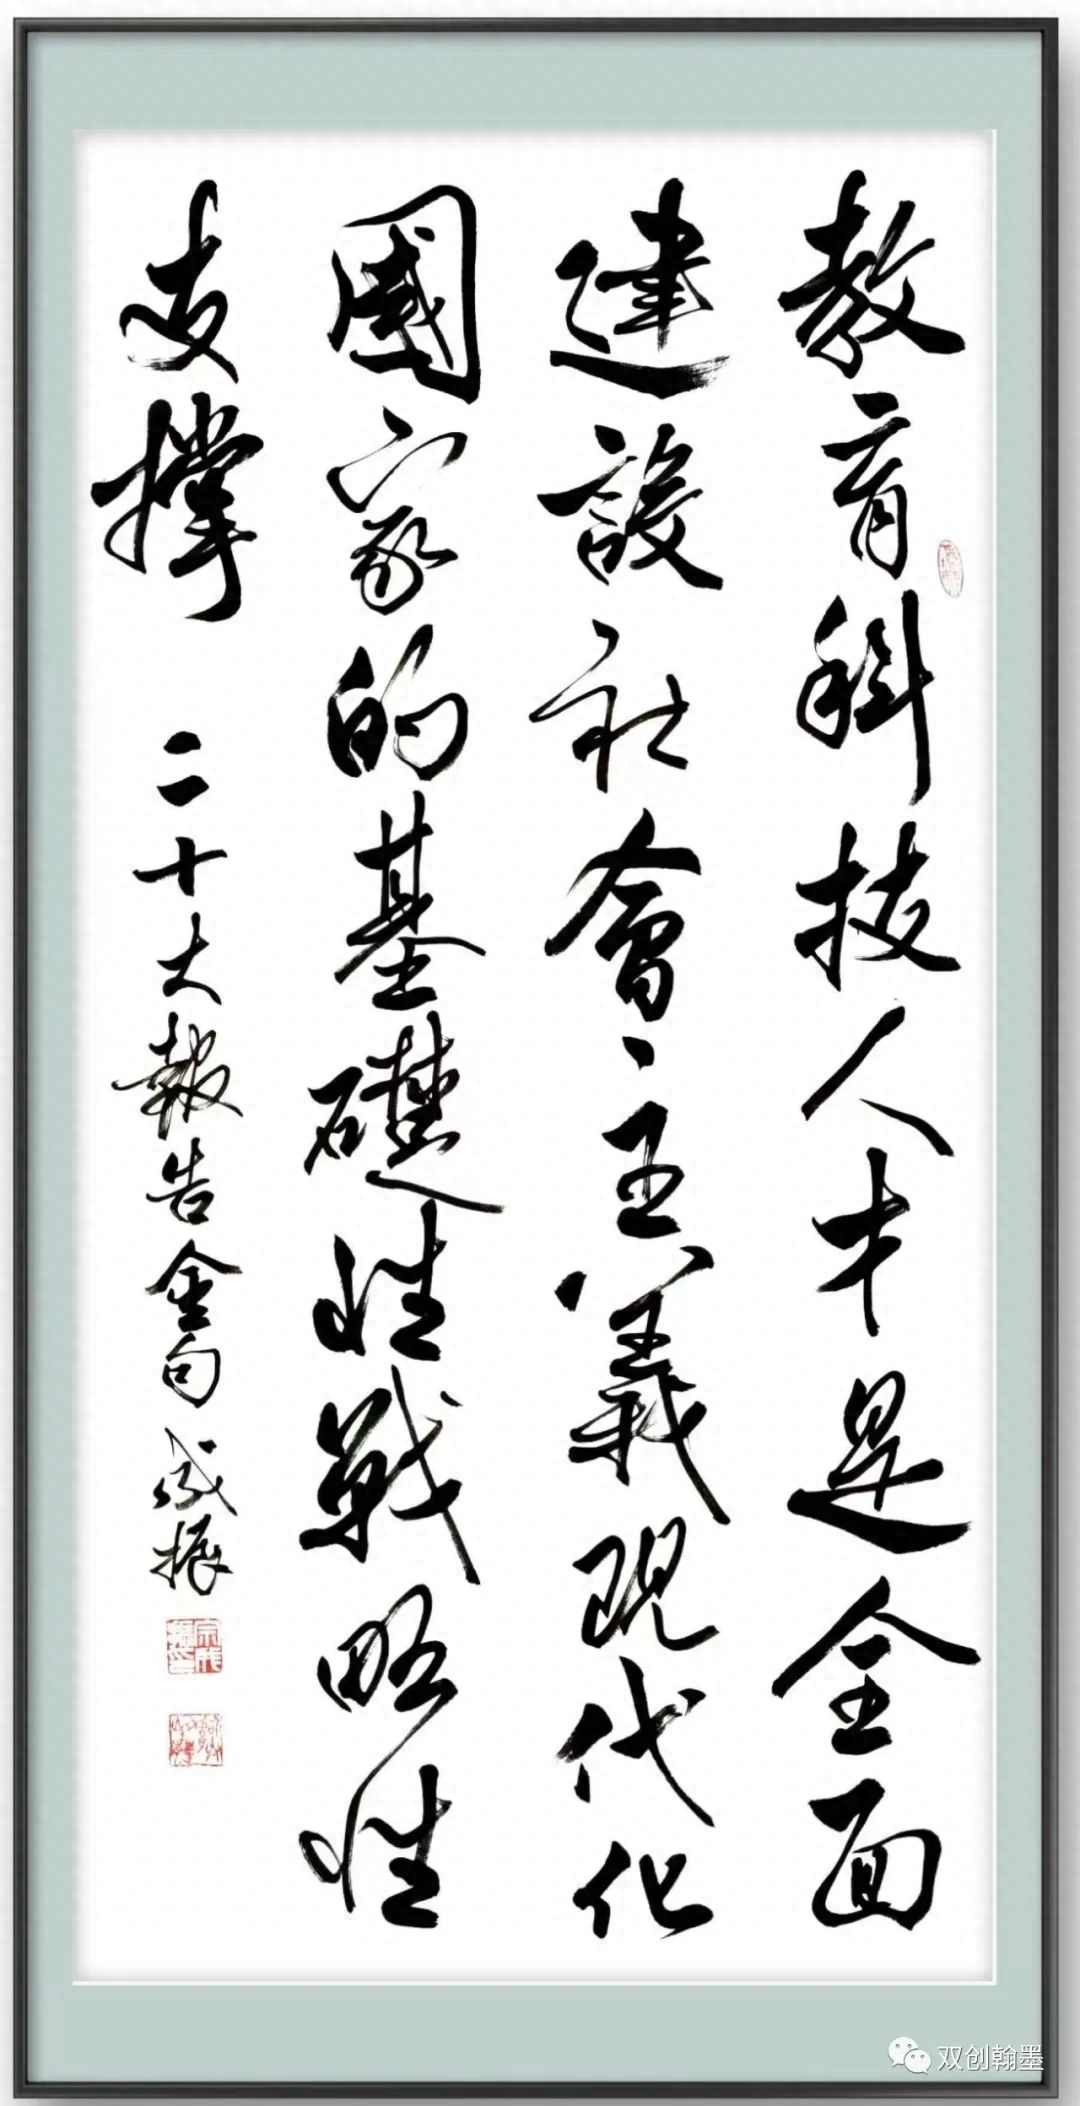 教育科技人才是全面
建設社會主義現代化
國家的基礎性戰略性
支撐 二十大報告金句 成振
双创翰墨